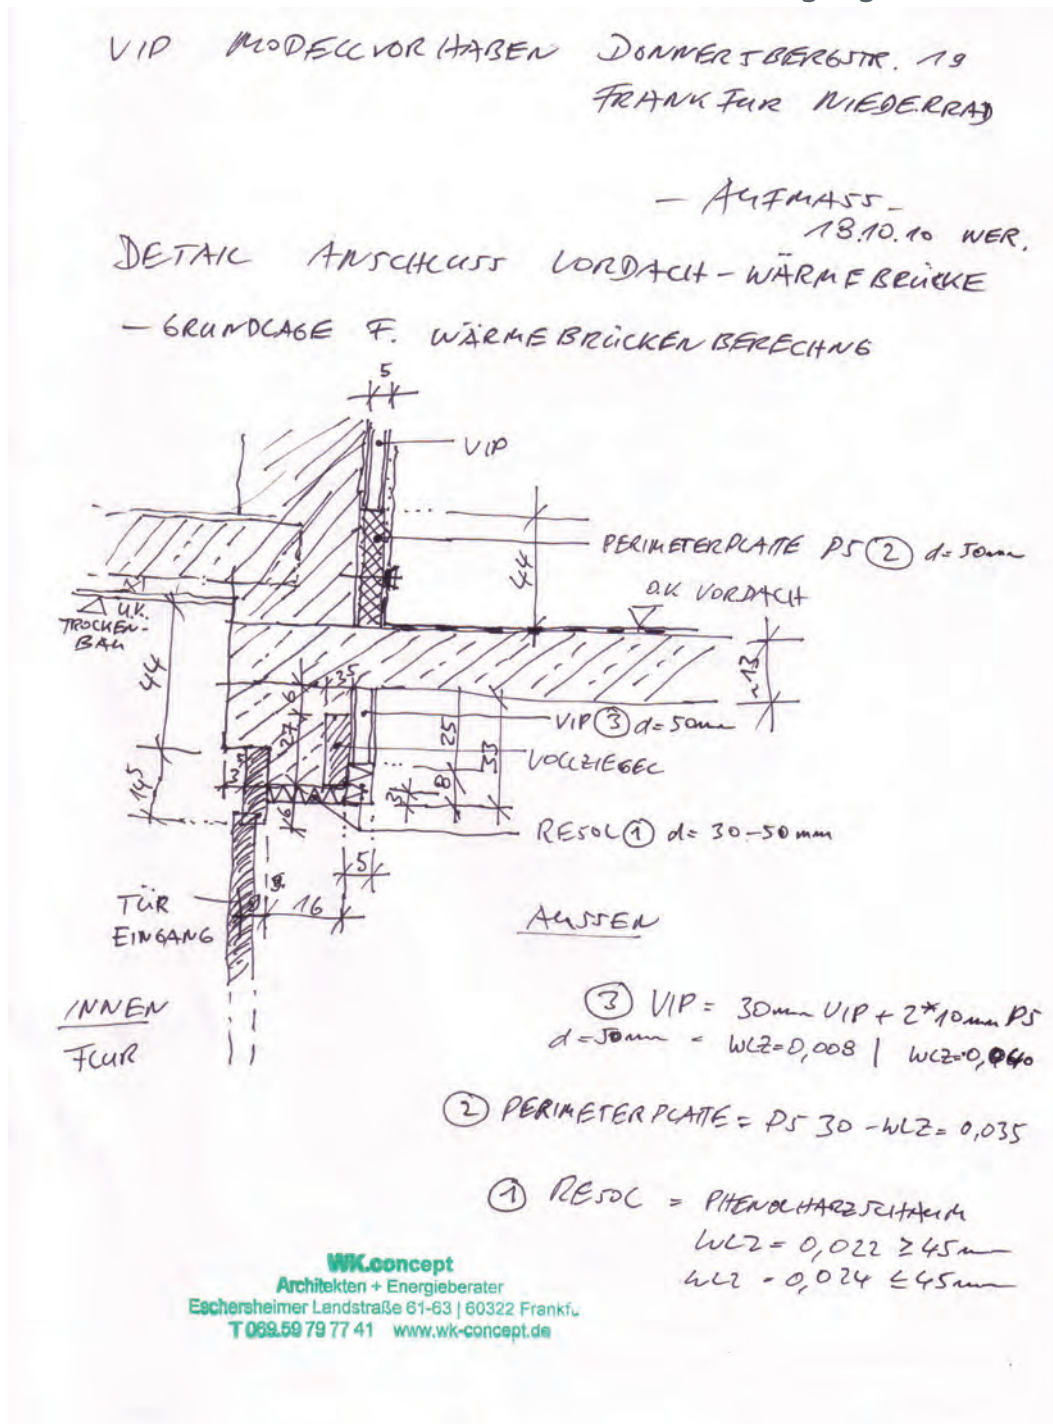 VIP MODELLVORHABEN DONNERSBERGSTR. 19
FRANKFUR NIEDERRAD
- AUFMASS -
18.10.10 WER.
DETAIL ANSCHLUSS VORDACH - WÄRMEBRÜCKE
- GRUNDLAGE F. WÄRMEBRÜCKENBERECHNG
5
VIP
PERIMETERPLATTE PS ② d= 50mm
44
O.K VORDACH
U.K.
TROCKEN-
BAU
44
~13
35
6
27
VIP ③ d= 50mm
25
33
VOLLZIEGEL
14,5
8
3
6
RESOL ① d= 30-50mm
5
16
TÜR
EINGANG
AUSSEN
INNEN
FLUR
③ VIP = 30mm VIP + 2*10mm PS
d=50mm - WLZ=0,008 | WLZ=0,040
② PERIMETERPLATTE = PS 30 - WLZ= 0,035
① RESOL = PHENOLHARZSCHAUM
WLZ = 0,022 ≥ 45mm
WLZ - 0,024 ≤ 45mm
WK.concept
Architekten + Energieberater
Eschersheimer Landstraße 61-63 | 60322 Frankfu
T 069.59 79 77 41 www.wk-concept.de